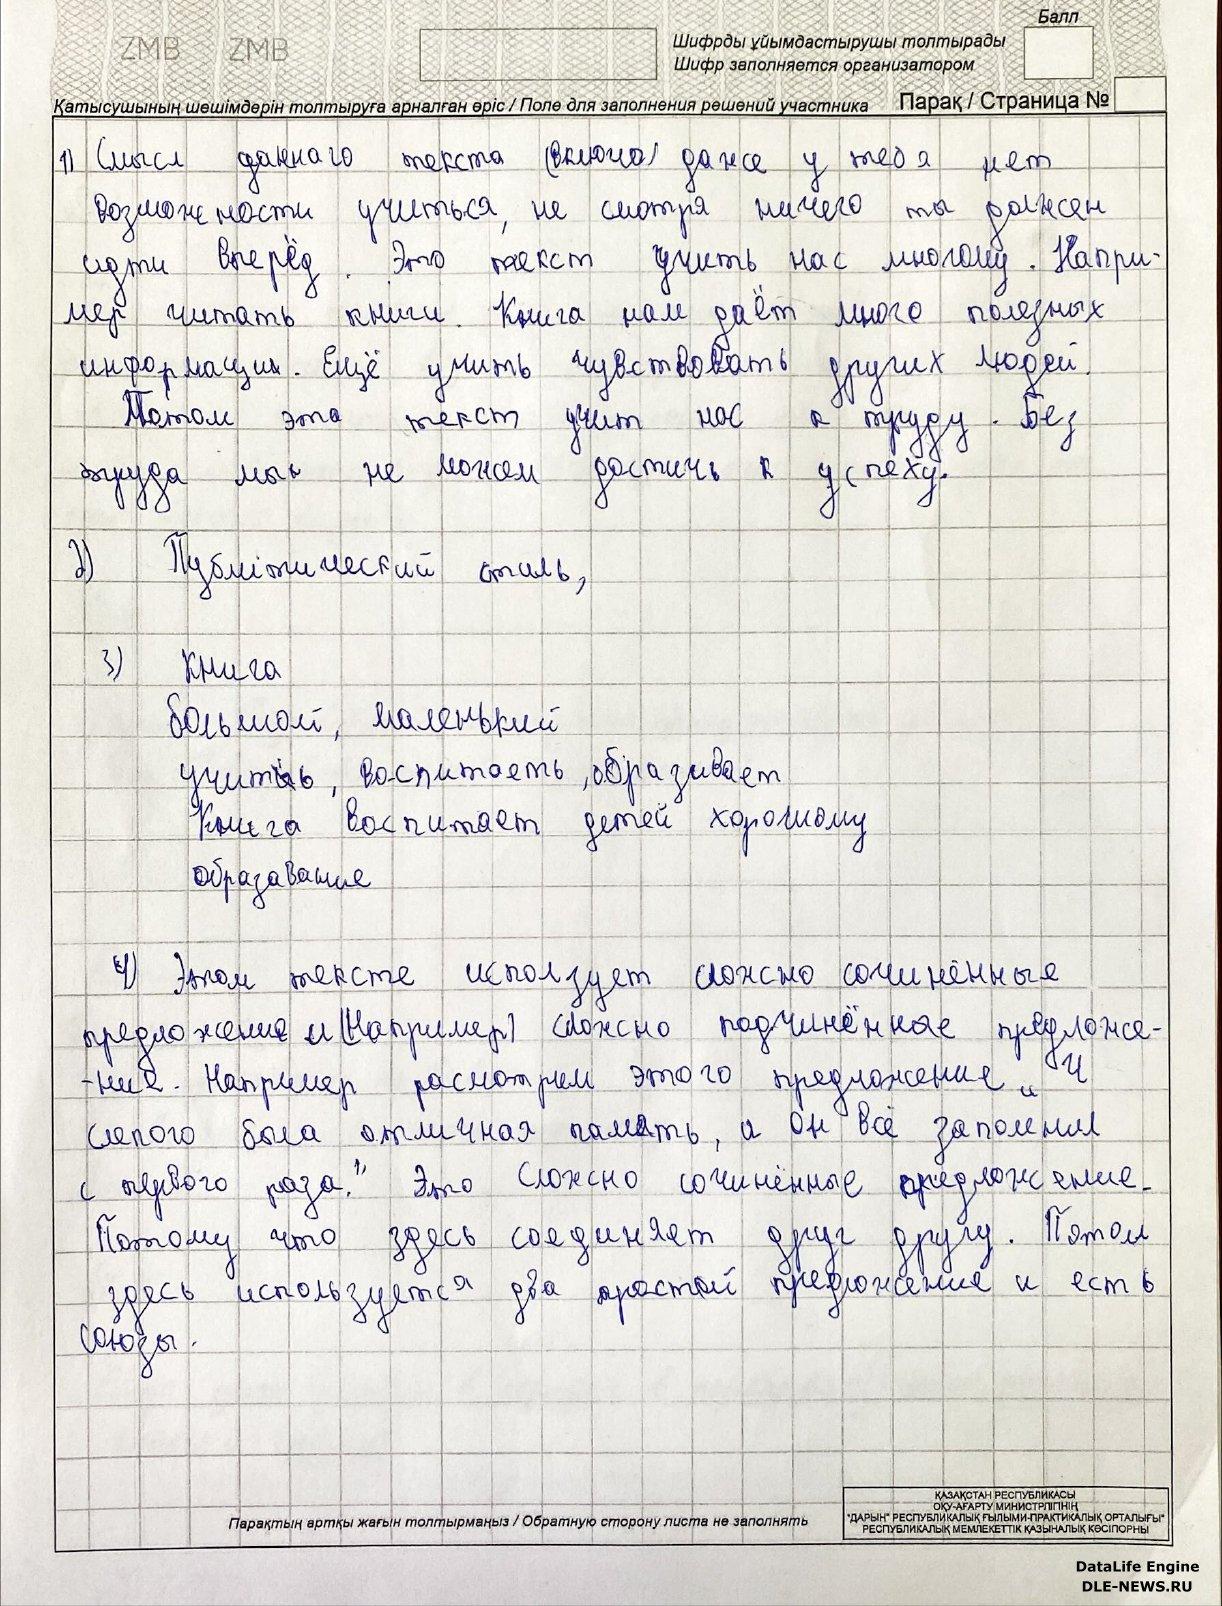 ZMB ZMB
Балл
Шифрды ұйымдастырушы толтырады
Шифр заполняется организатором
Қатысушының шешімдерін толтыруға арналған өріс / Поле для заполнения решений участника
Парақ / Страница №
1) Смысл даннаго текста даже у тебя нет
возможности учиться, не смотря ничего ты должен
идти вперёд. Это текст учить нас многому. Напри-
мер читать книги. Книга нам даёт много полезных
информации. Ещё учить чувствовать других людей.
Потом эта текст учит нас к труду. Без
труда мы не можем достичь к успеху.
2) Публитический стиль,
3) Книга
большой, маленький
учить, воспитаеть, образивает
Книга воспитает детей хорошому
образавание
4) Этом тексте использует сложно сочинённые
предложение и (Например) сложно подчинённые предложе-
-ние. Например расмотрим этого предложение „У
слепого была отличная память, и он всё запомнил
с первого раза." Это сложно сочинённые предложение.
Потому что здесь соединяет друг другу. Потом
здесь используется два простой предложение и есть
союзы.
Парақтың артқы жағын толтырмаңыз / Обратную сторону листа не заполнять
ҚАЗАҚСТАН РЕСПУБЛИКАСЫ
ОҚУ-АҒАРТУ МИНИСТРЛІГІНІҢ
"ДАРЫН" РЕСПУБЛИКАЛЫҚ ҒЫЛЫМИ-ПРАКТИКАЛЫҚ ОРТАЛЫҒЫ"
РЕСПУБЛИКАЛЫҚ МЕМЛЕКЕТТІК ҚАЗЫНАЛЫҚ КӘСІПОРНЫ
DataLife Engine
DLE-NEWS.RU